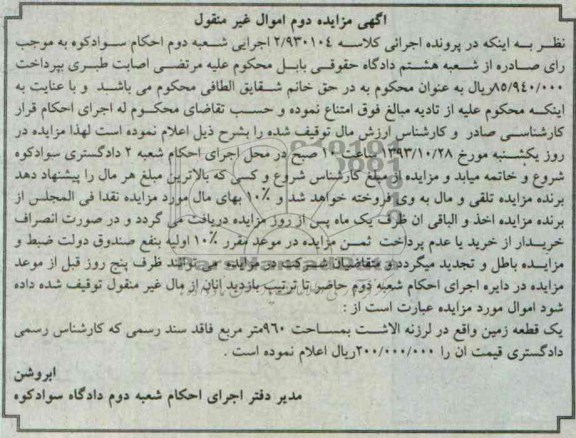 آگهی مزایده دوم اموال غیر منقول
نظر به اینکه در پرونده اجرائی کلاسه ۲/۹۳۰۱۰۴ اجرایی شعبه دوم احکام سوادکوه به موجب
رای صادره از شعبه هشتم دادگاه حقوقی بابل محکوم علیه مرتضی اصابت طبری بپرداخت
۸۵/۹۴۰/۰۰۰ریال به عنوان محکوم به در حق خانم شقایق الطافی محکوم می باشد و با عنایت به
اینکه محکوم علیه از تادیه مبالغ فوق امتناع نموده و حسب تقاضای محکوم له اجرای احکام قرار
کارشناسی صادر و کارشناس ارزش مال توقیف شده را بشرح ذیل اعلام نموده است لهذا مزایده در
روز یکشنبه مورخ ۱۳۹۳/۱۰/۲۸ ۱۰ صبح در محل اجرای احکام شعبه ۲ دادگستری سوادکوه
شروع و خاتمه میابد و مزایده از مبلغ کارشناس شروع و کسی که بالاترین مبلغ هر مال را پیشنهاد دهد
برنده مزایده تلقی و مال به وی فروخته خواهد شد و ۱۰٪ بهای مال مورد مزایده نقدا فی المجلس از
برنده مزایده اخذ و الباقی ان ظرف یک ماه پس از روز مزایده دریافت می گردد و در صورت انصراف
خریدار از خرید یا عدم پرداخت ثمن مزایده در موعد مقرر ۱۰٪ اولیه بنفع صندوق دولت ضبط و
مزایده باطل و تجدید میگردد و متقاضیان شرکت در مزایده می توانند ظرف پنج روز قبل از موعد
مزایده در دایره اجرای احکام شعبه دوم حاضر تا ترتیب بازدید انان از مال غیر منقول توقیف شده داده
شود اموال مورد مزایده عبارت است از :
یک قطعه زمین واقع در لرزنه الاشت بمساحت ۹۶۰متر مربع فاقد سند رسمی که کارشناس رسمی
دادگستری قیمت ان را ۲۰۰/۰۰۰/۰۰۰ریال اعلام نموده است .
ابروشن
مدیر دفتر اجرای احکام شعبه دوم دادگاه سوادکوه